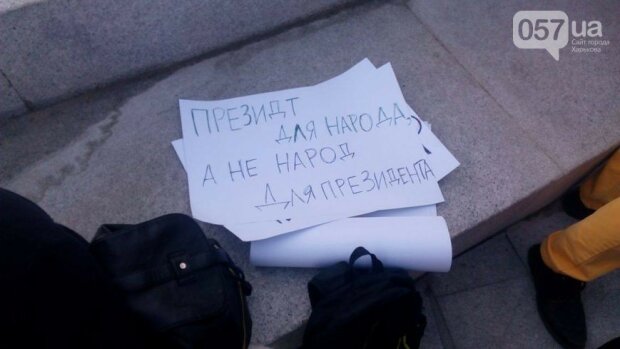 057ua
Сайт города
Харькова
ПРЕЗИДТ
ДЛЯ НАРОДА,
А НЕ НАРОД
ДЛЯ ПРЕЗИДЕНТА